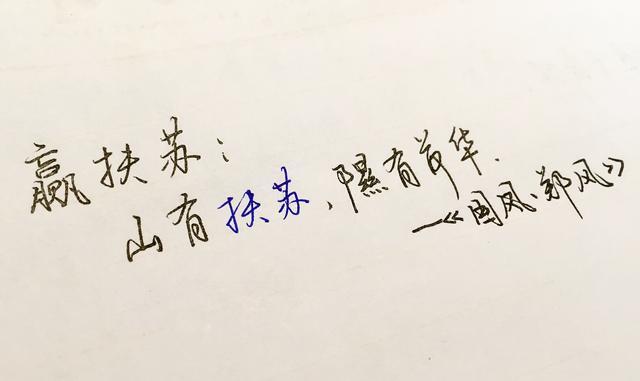 赢扶苏:
山有扶苏,隰有荷华.
—《国风·郑风》